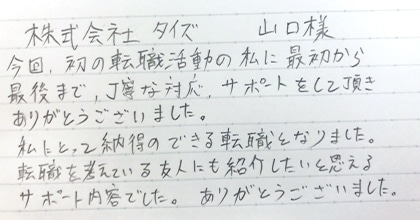 株式会社 タイズ 山口様
今回、初の転職活動の私に最初から
最後まで、丁寧な対応、サポートをして頂き
ありがとうございました。
私にとって納得のできる転職となりました。
転職を考えている友人にも紹介したいと思える
サポート内容でした。 ありがとうございました。